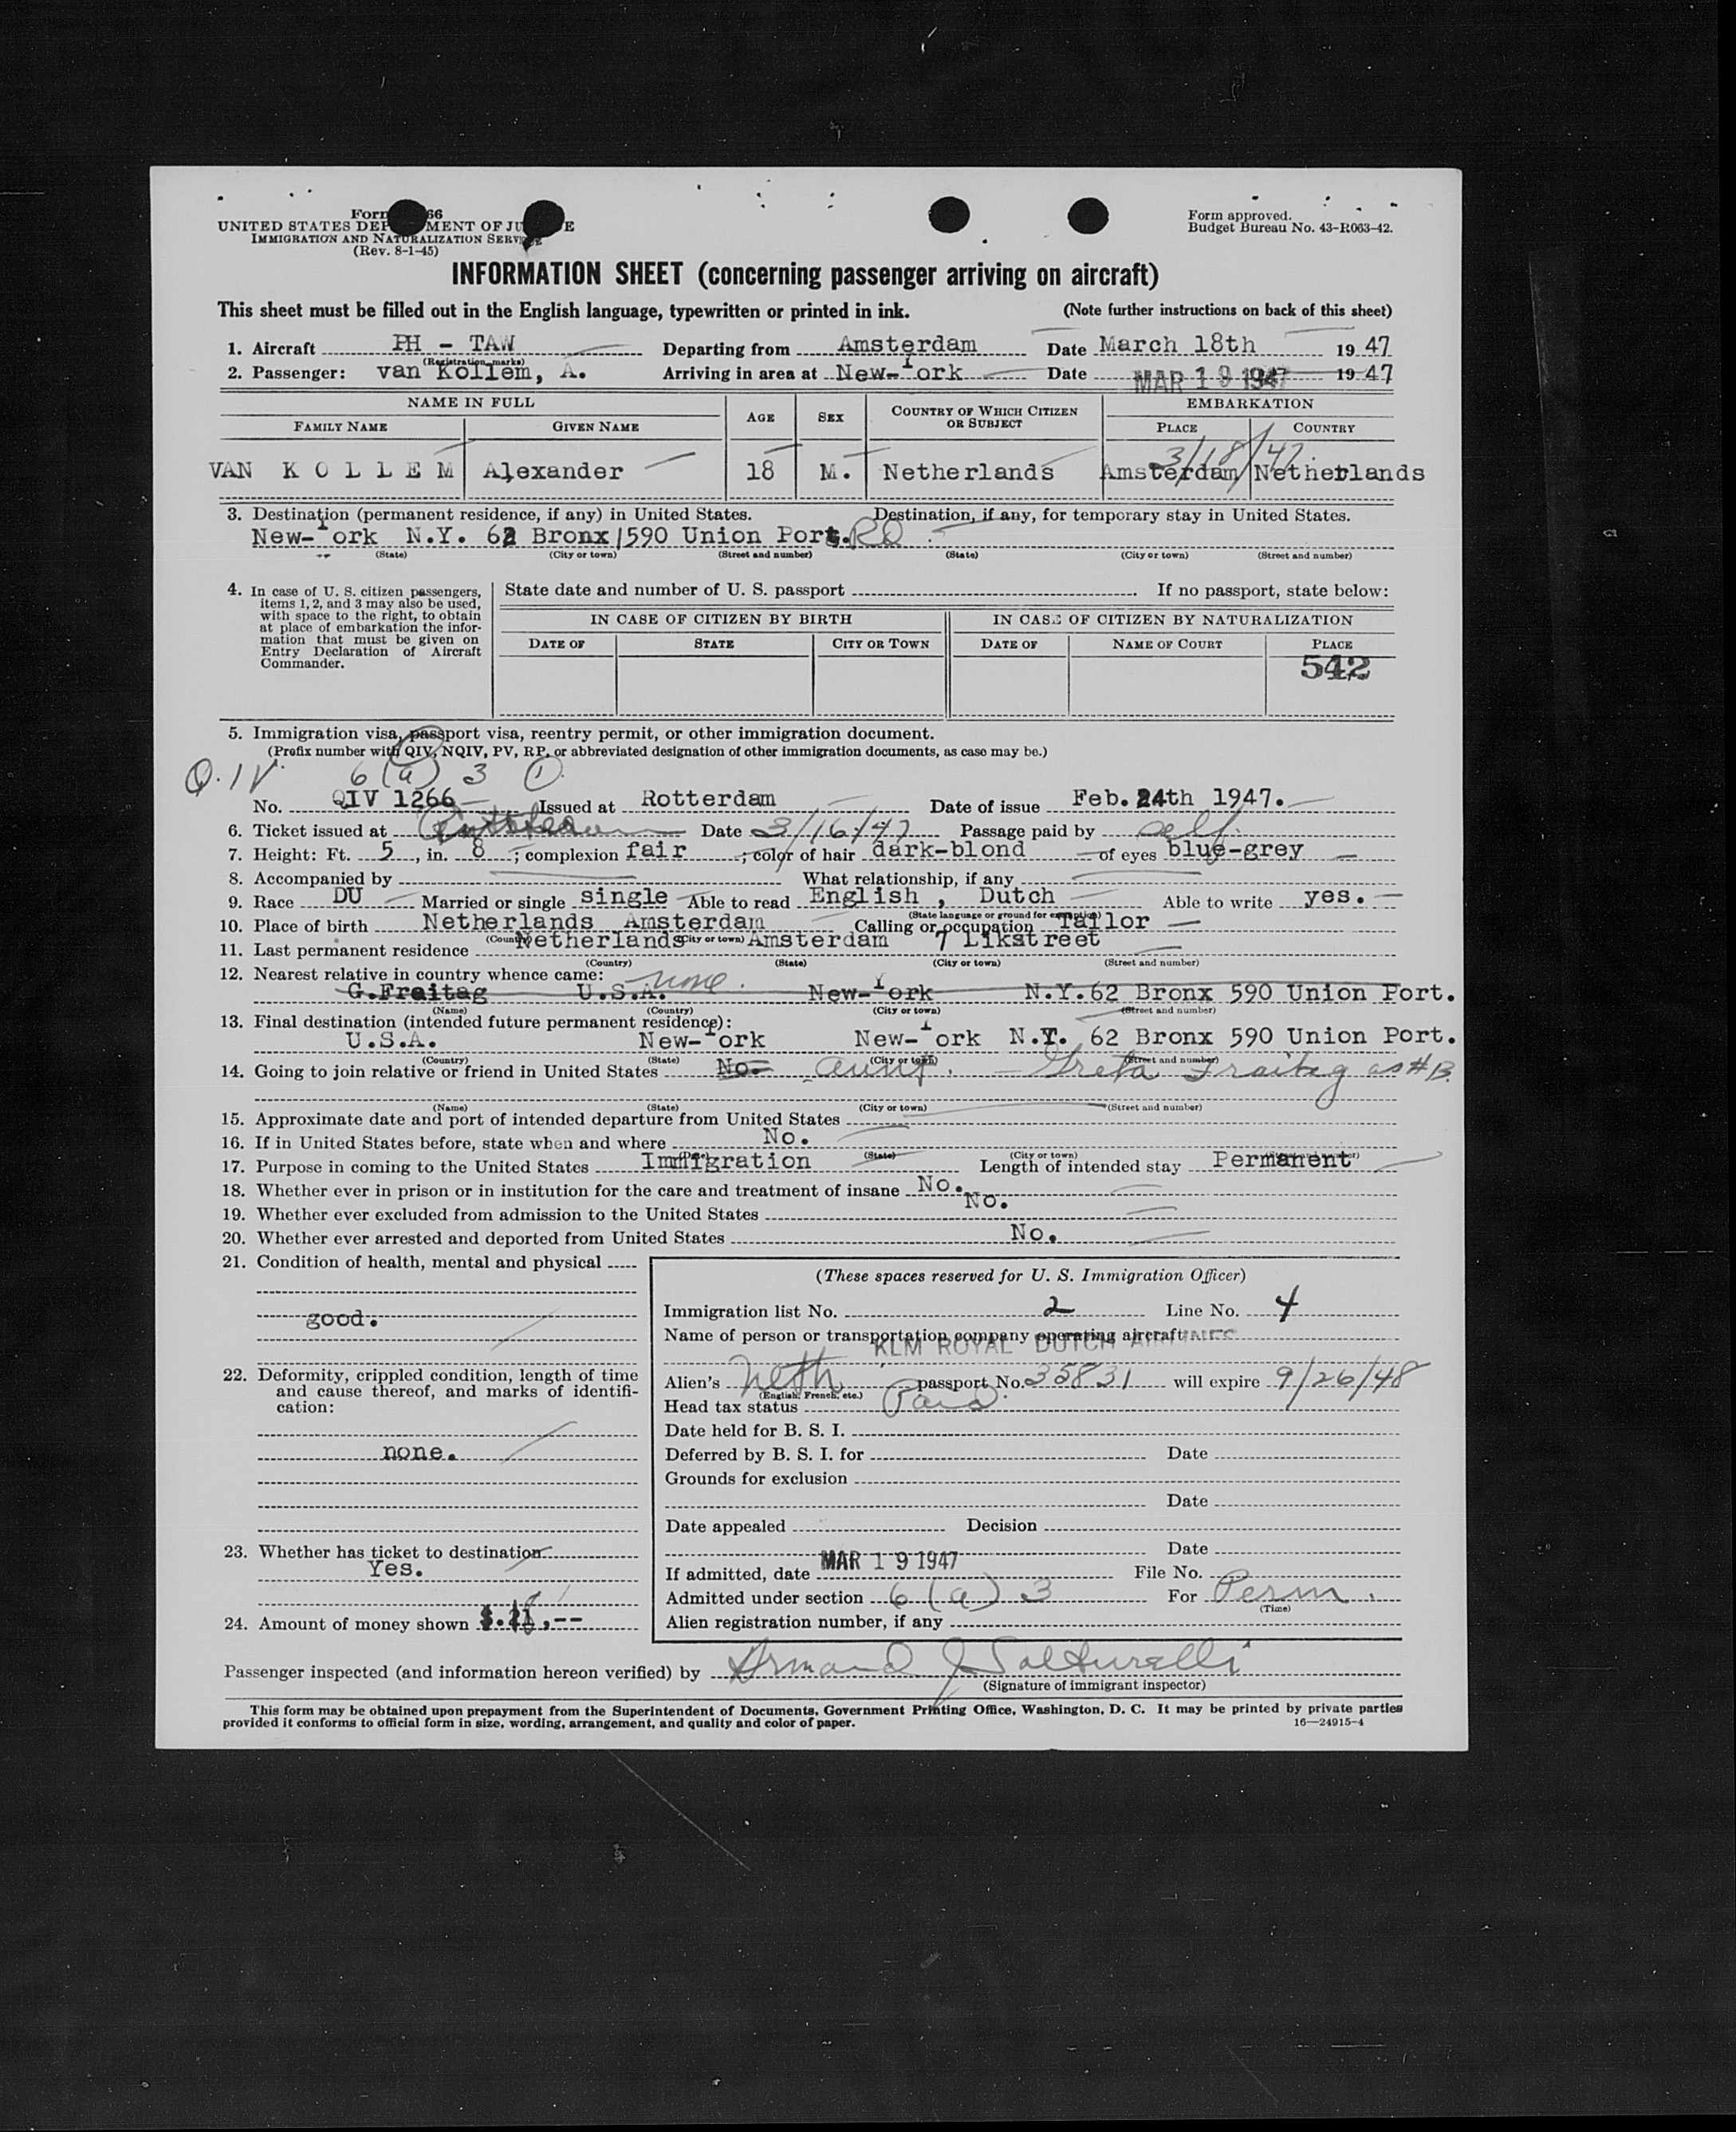 Form 66
UNITED STATES DEP MENT OF JU E
IMMIGRATION AND NATURALIZATION SERVICE
(Rev. 8-1-45)
Form approved.
Budget Bureau No. 43-R063-42.
INFORMATION SHEET (concerning passenger arriving on aircraft)
This sheet must be filled out in the English language, typewritten or printed in ink. (Note further instructions on back of this sheet)
1. Aircraft PH - TAW Departing from Amsterdam Date March 18th 1947
(Registration marks)
2. Passenger: van Kollem, A. Arriving in area at New-York Date MAR 19 1947 1947
NAME IN FULL AGE SEX COUNTRY OF WHICH CITIZEN OR SUBJECT EMBARKATION
FAMILY NAME GIVEN NAME PLACE COUNTRY
3/18/47
VAN KOLLEM Alexander 18 M. Netherlands Amsterdam Netherlands
3. Destination (permanent residence, if any) in United States. Destination, if any, for temporary stay in United States.
New-York N.Y. 62 Bronx 1590 Union Port. RD
(State) (City or town) (Street and number) (State) (City or town) (Street and number)
4. In case of U. S. citizen passengers, items 1, 2, and 3 may also be used, with space to the right, to obtain at place of embarkation the information that must be given on Entry Declaration of Aircraft Commander.
State date and number of U. S. passport If no passport, state below:
IN CASE OF CITIZEN BY BIRTH IN CASE OF CITIZEN BY NATURALIZATION
DATE OF STATE CITY OR TOWN DATE OF NAME OF COURT PLACE
542
5. Immigration visa, passport visa, reentry permit, or other immigration document.
(Prefix number with QIV, NQIV, PV, RP, or abbreviated designation of other immigration documents, as case may be.)
Q.IV. 6(a) 3 1
No. QIV 1266 Issued at Rotterdam Date of issue Feb. 24th 1947.
6. Ticket issued at Date 3/16/47 Passage paid by self.
7. Height: Ft. 5, in. 8; complexion fair; color of hair dark-blond of eyes blue-grey
8. Accompanied by What relationship, if any
9. Race DU Married or single single Able to read English, Dutch Able to write yes.
(State language or ground for exemption)
10. Place of birth Netherlands Amsterdam Calling or occupation Tailor
(Country) (City or town)
11. Last permanent residence Netherlands Amsterdam 7 Likstreet
(Country) (State) (City or town) (Street and number)
12. Nearest relative in country whence came: none.
G.Fraitag U.S.A. New-York N.Y.62 Bronx 590 Union Port.
(Name) (Country) (City or town) (Street and number)
13. Final destination (intended future permanent residence):
U.S.A. New-York New-York N.Y. 62 Bronx 590 Union Port.
(Country) (State) (City or town) (Street and number)
14. Going to join relative or friend in United States No. aunt. - Greta Fraitag as # 13.
(Name) (State) (City or town) (Street and number)
15. Approximate date and port of intended departure from United States
16. If in United States before, state when and where No.
(State) (City or town)
17. Purpose in coming to the United States Immigration Length of intended stay Permanent
18. Whether ever in prison or in institution for the care and treatment of insane No.
19. Whether ever excluded from admission to the United States No.
20. Whether ever arrested and deported from United States No.
21. Condition of health, mental and physical
good.
22. Deformity, crippled condition, length of time and cause thereof, and marks of identification:
none.
23. Whether has ticket to destination
Yes.
24. Amount of money shown
(These spaces reserved for U. S. Immigration Officer)
Immigration list No. 2 Line No. 4
Name of person or transportation company operating aircraft
KLM ROYAL DUTCH AIRLINES
Alien's Neth passport No. 35831 will expire 9/26/48
(English, French, etc.)
Head tax status Paid
Date held for B. S. I.
Deferred by B. S. I. for Date
Grounds for exclusion
Date
Date appealed Decision
Date
If admitted, date MAR 19 1947 File No.
Admitted under section 6(a) 3 For Perm.
(Time)
Alien registration number, if any
Passenger inspected (and information hereon verified) by Armand J
(Signature of immigrant inspector)
This form may be obtained upon prepayment from the Superintendent of Documents, Government Printing Office, Washington, D. C. It may be printed by private parties
provided it conforms to official form in size, wording, arrangement, and quality and color of paper.
16—24915-4